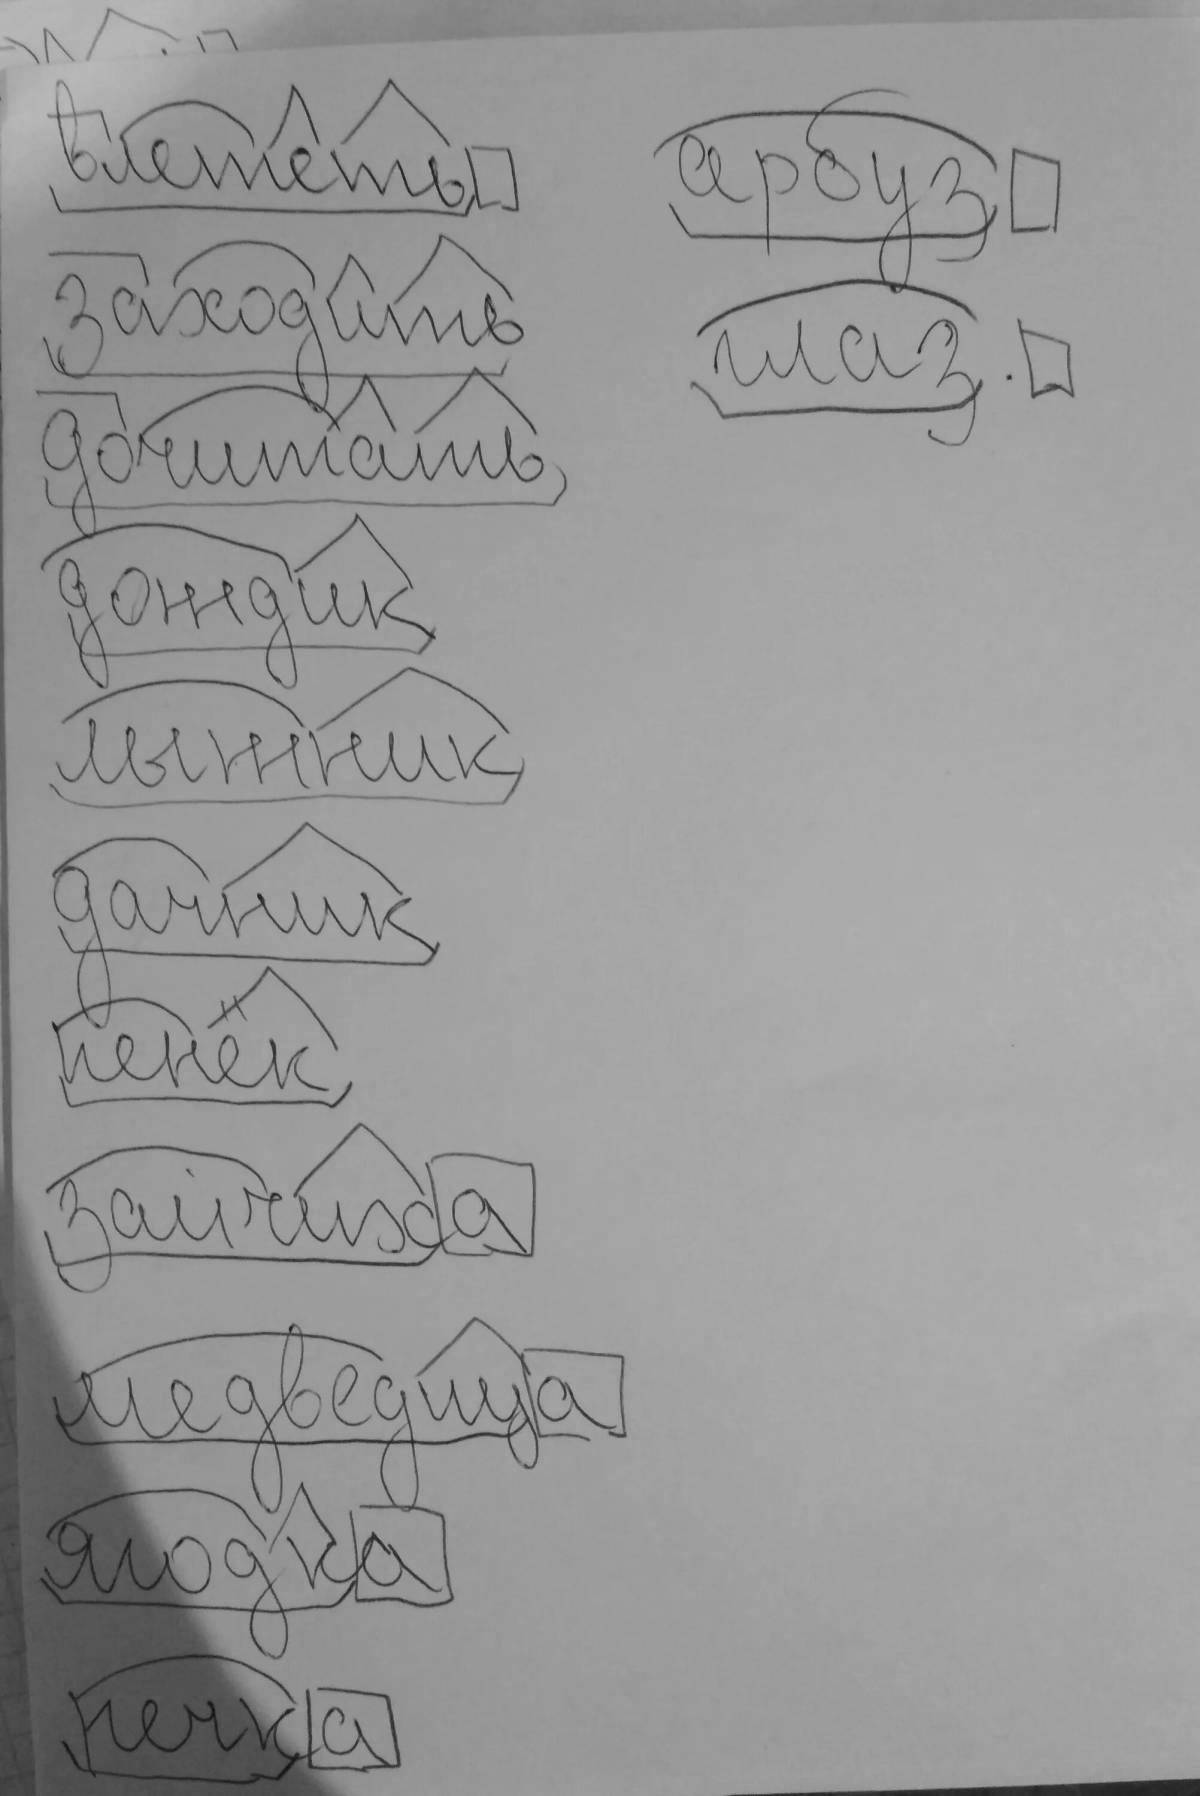 влететь
заходить
дочитать
дождик
лыжник
дачник
пенёк
зайчиха
медведица
ягодка
печка
арбуз
глаз.